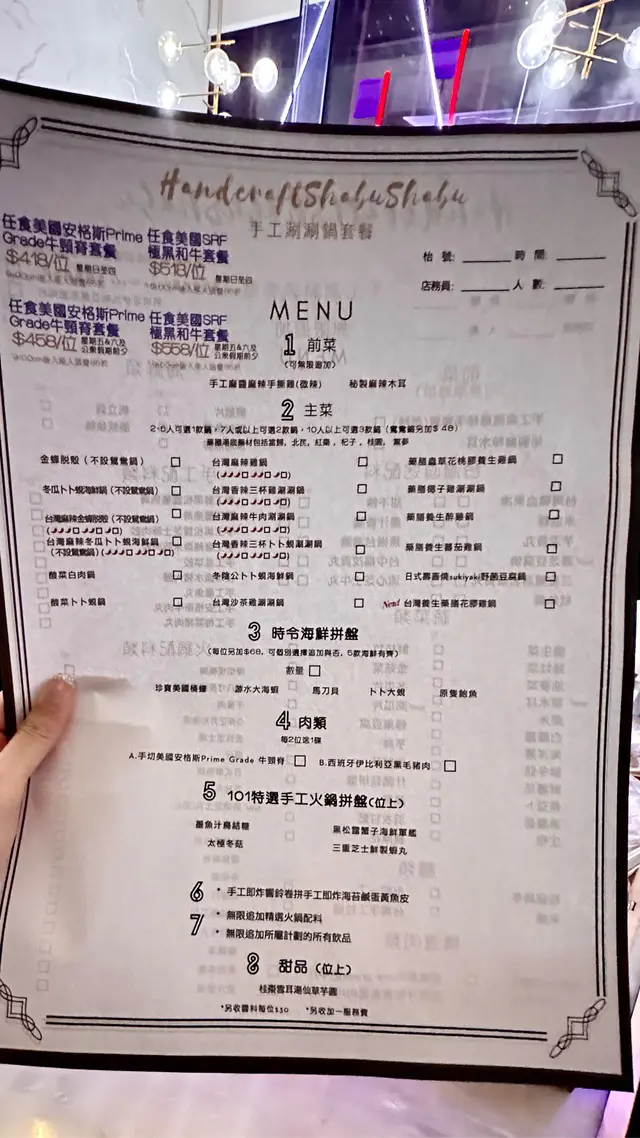 HandcraftShabuShabu
手工涮涮鍋套餐
任食美國安格斯Prime
Grade牛頸脊套餐
$418/位 星期日至四
任食美國SRF
極黑和牛套餐
$518/位 星期日至四
任食美國安格斯Prime
Grade牛頸脊套餐
$458/位 星期五&六及
公眾假期前夕
任食美國SRF
極黑和牛套餐
$558/位 星期五&六及
公眾假期前夕
枱 號: 時 間:
店務員: 人 數:
MENU
1 前菜
(可無限追加)
手工麻醬麻辣手撕雞(微辣) 秘製麻辣木耳
2 主菜
2-6人可選1款鍋,7人或以上可選2款鍋,10人以上可選3款鍋 (鴛鴦鍋另加$48)
藥膳湯底藥材包括當歸, 北芪, 紅棗, 杞子, 桂圓, 黨參
金蟬脱殼 (不設鴛鴦鍋) 台灣麻辣雞鍋 藥膳蟲草花桃膠養生雞鍋
冬瓜卜卜蜆海鮮鍋 (不設鴛鴦鍋) 台灣香辣三杯雞涮涮鍋 藥膳椰子雞涮涮鍋
台灣麻辣金蟬脱殼 (不設鴛鴦鍋) 台灣麻辣牛肉涮涮鍋 藥膳養生醉雞鍋
台灣麻辣冬瓜卜卜蜆海鮮鍋 台灣香辣三杯卜卜蜆涮涮鍋 藥膳養生蕃茄雞鍋
(不設鴛鴦鍋)
酸菜白肉鍋 冬陰公卜卜蜆海鮮鍋 日式壽喜燒sukiyaki野菌豆腐鍋
酸菜卜卜蜆鍋 台灣沙茶雞涮涮鍋 New! 台灣養生藥膳花膠雞鍋
3 時令海鮮拼盤
(每位另加$68, 可個別選擇追加與否, 5款海鮮有齊)
數量
珍寶美國桶蠔 游水大海蝦 馬刀貝 卜卜大蜆 原隻鮑魚
4 肉類
每2位送1碟
A.手切美國安格斯Prime Grade 牛頸脊 B.西班牙伊比利亞黑毛豬肉
5 101特選手工火鍋拼盤(位上)
墨魚汁烏結糖 黑松露蟹子海鮮軍艦
太極冬菇 三重芝士鮮製蝦丸
6 * 手工即炸響鈴卷拼手工即炸海苔鹹蛋黃魚皮
7 * 無限追加精選火鍋配料
* 無限追加所屬計劃的所有飲品
8 甜品 (位上)
桂棗雪耳湯仙草芋圓
*另收醬料每位$30 *另收加一服務費